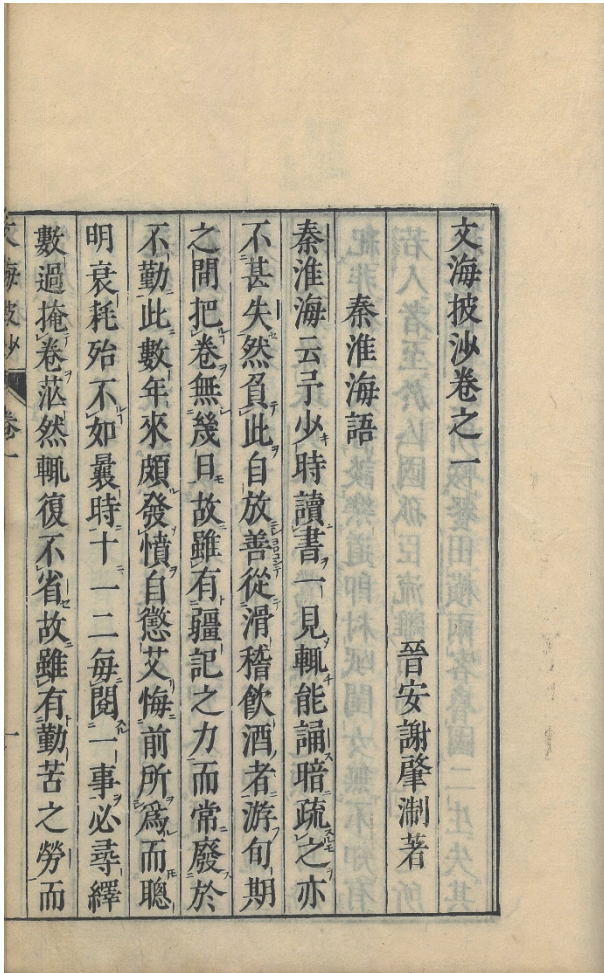 文海披沙卷之一
晉安謝肇淛著
秦淮海語
秦淮海云予少時讀書一見輒能誦暗疏之亦
不甚失然負此自放善從滑稽飲酒者游旬期
之間把卷無幾日故雖有疆記之力而常廢於
不勤此數年來頗發憤自懲艾悔前所爲而聰
明衰耗殆不如曩時十一二每閱一事必尋繹
數過掩卷茫然輒復不省故雖有勤苦之勞而
文海披沙 卷一 一